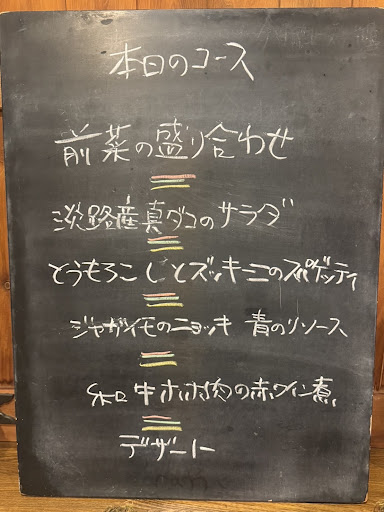 本日のコース
前菜の盛り合わせ
淡路産真ダコのサラダ
とうもろこしとズッキーニのスパゲッティ
ジャガイモのニョッキ 青のりソース
牛ホホ肉の赤ワイン煮
デザート